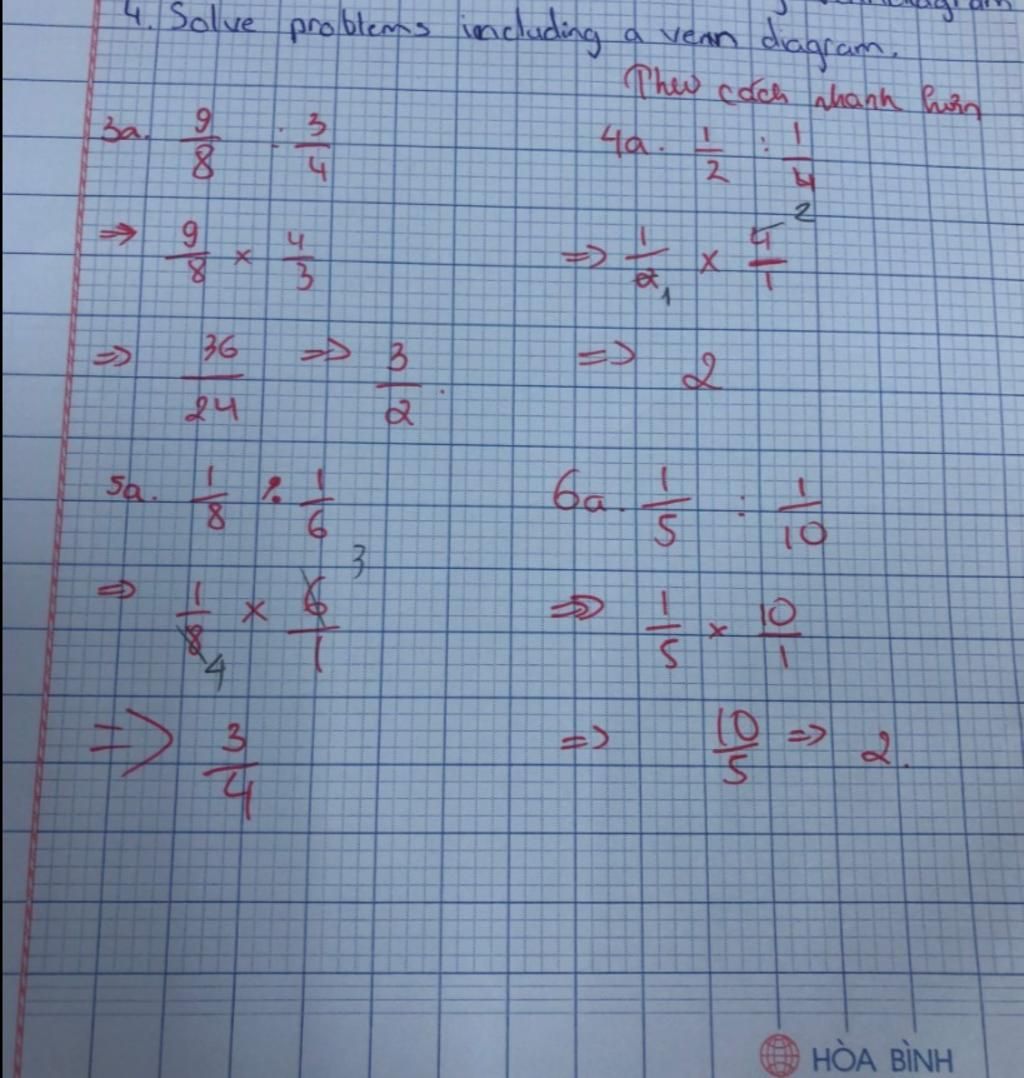 4. Solve problems including a venn diagram.
Theo cách nhanh hơn
3a. 9/8 : 3/4
⇒ 9/8 × 4/3
⇒ 36/24 ⇒ 3/2.
4a. 1/2 : 1/4
⇒ 1/2 1 × 4/1 2
⇒ 2
5a. 1/8 : 1/6
⇒ 1/8 4 × 6/1 3
⇒ 3/4
6a. 1/5 : 1/10
⇒ 1/5 × 10/1
⇒ 10/5 ⇒ 2.
HÒA BÌNH